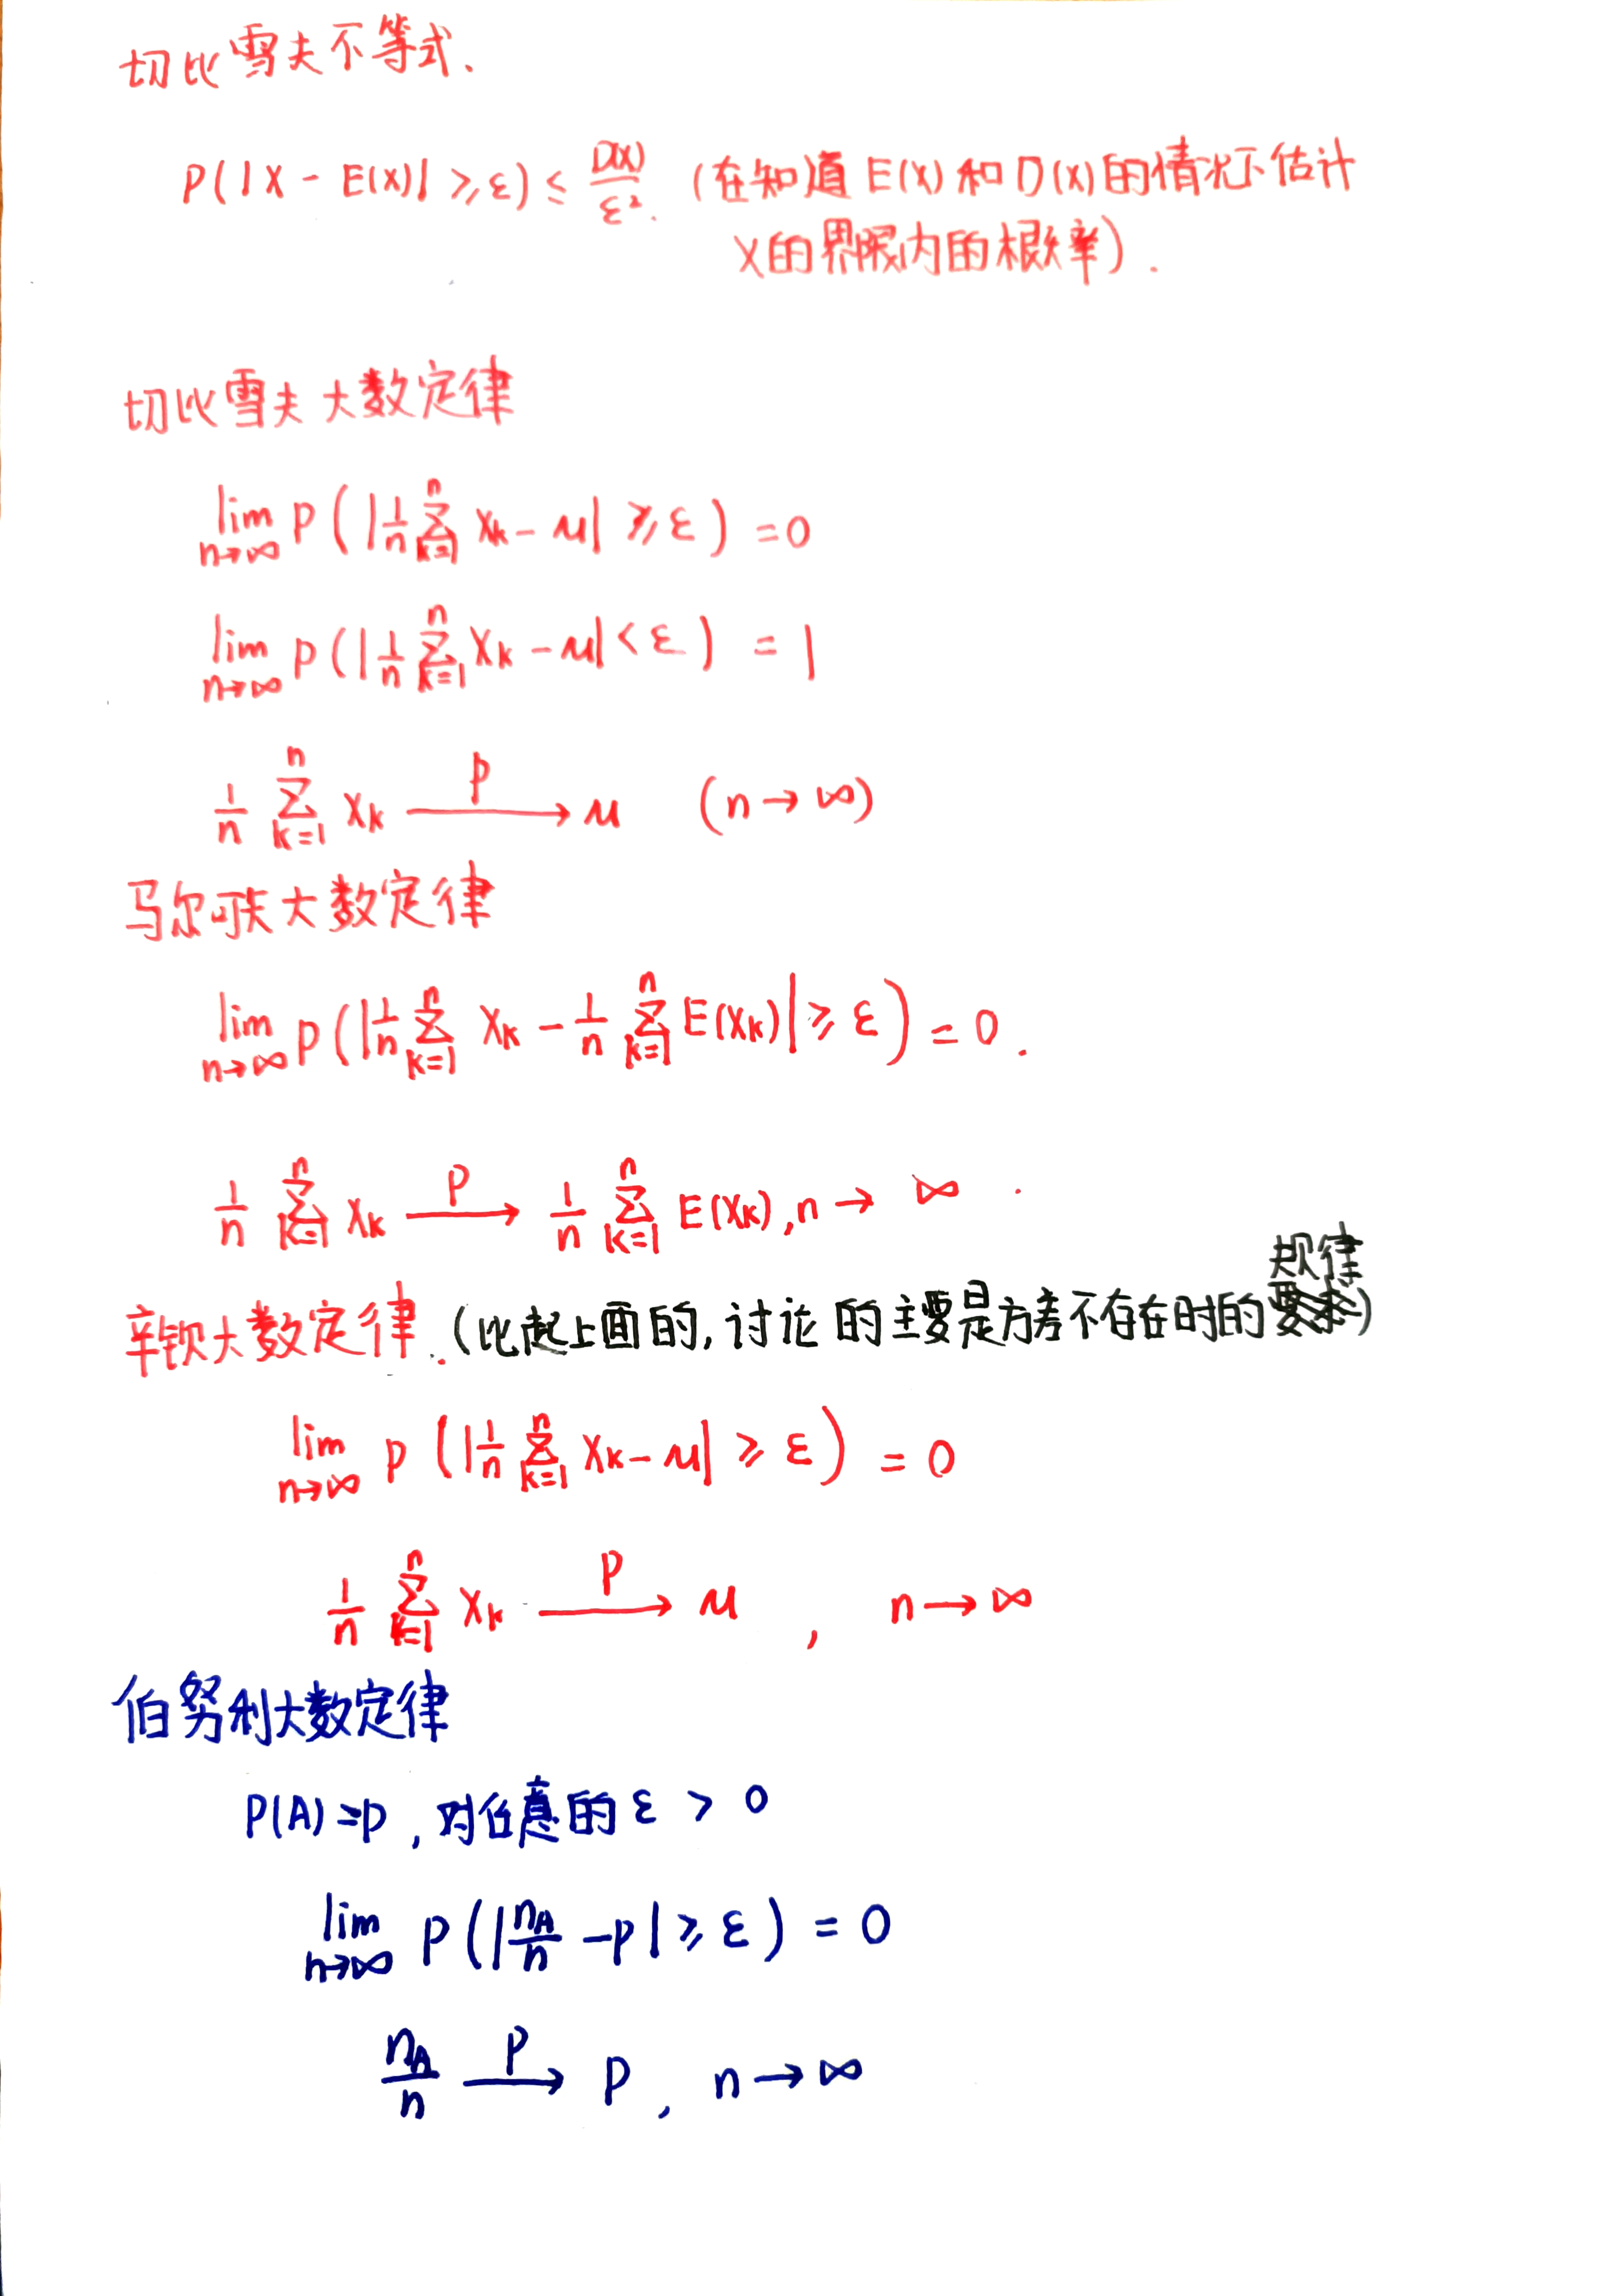 切比雪夫不等式.
P(|X - E(X)| ≥ ε) ≤ D(X)/ε². (在知道E(X)和D(X)的情况下估计
X的界限内的概率).
切比雪夫大数定律
lim n→∞ P(|1/n ∑ k=1 n Xk - μ| ≥ ε) = 0
lim n→∞ P(|1/n ∑ k=1 n Xk - μ| < ε) = 1
1/n ∑ k=1 n Xk —P→ μ (n → ∞)
马尔可夫大数定律
lim n→∞ P(|1/n ∑ k=1 n Xk - 1/n ∑ k=1 n E(Xk)| ≥ ε) = 0.
1/n ∑ k=1 n Xk —P→ 1/n ∑ k=1 n E(Xk), n → ∞.
辛钦大数定律.(比起上面的,讨论的主要是方差不存在时的规律)
lim n→∞ P(|1/n ∑ k=1 n Xk - μ| ≥ ε) = 0
1/n ∑ k=1 n Xk —P→ μ, n → ∞
伯努利大数定律
P(A)=p,对任意的 ε > 0
lim n→∞ P(|nA/n - p| ≥ ε) = 0
nA/n —P→ p, n → ∞